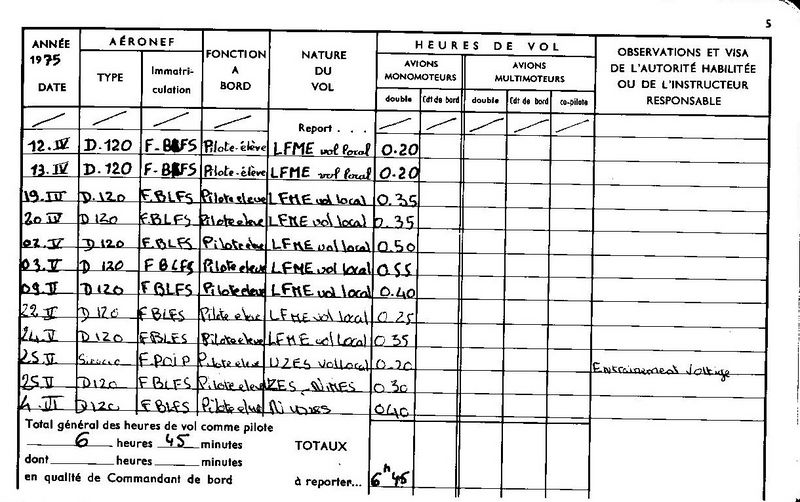 5
ANNÉE 1975 DATE | AÉRONEF | FONCTION A BORD | NATURE DU VOL | HEURES DE VOL | OBSERVATIONS ET VISA DE L'AUTORITÉ HABILITÉE OU DE L'INSTRUCTEUR RESPONSABLE
TYPE | Immatriculation | AVIONS MONOMOTEURS | AVIONS MULTIMOTEURS
double | Cdt de bord | double | Cdt de bord | co-pilote
Report . . .
12.IV D.120 F-BLFS Pilote-élève LFME vol local 0.20
13.IV D.120 F-BLFS Pilote-élève LFME vol local 0.20
19.IV D.120 F.BLFS Pilote eleve LFME vol local 0.35
20 IV D 120 F.BLFS Pilote eleve LFME vol local 0.35
02.V D.120 F.BLFS Pilote eleve LFME vol local 0.50
03.V D 120 F BLFS Pilote eleve LFME vol local 0.55
09.V D120 FBLFS Pilote eleve LFME vol local 0.40
22 V D120 F BLFS Pilote eleve LFME vol local 0.25
24.V D120 FBLFS Pilote eleve LFME vol local 0 35
25.V F.POIP Pilote eleve UZES vol local 0.20 Entrainement voltige
25.V D120 FBLFS Pilote eleve UZES - NIMES 0 30
4.VI D120 F BLFS Pilote eleve 0.40
Total général des heures de vol comme pilote
6 heures 45 minutes TOTAUX
dont heures minutes
en qualité de Commandant de bord à reporter... 6h 45